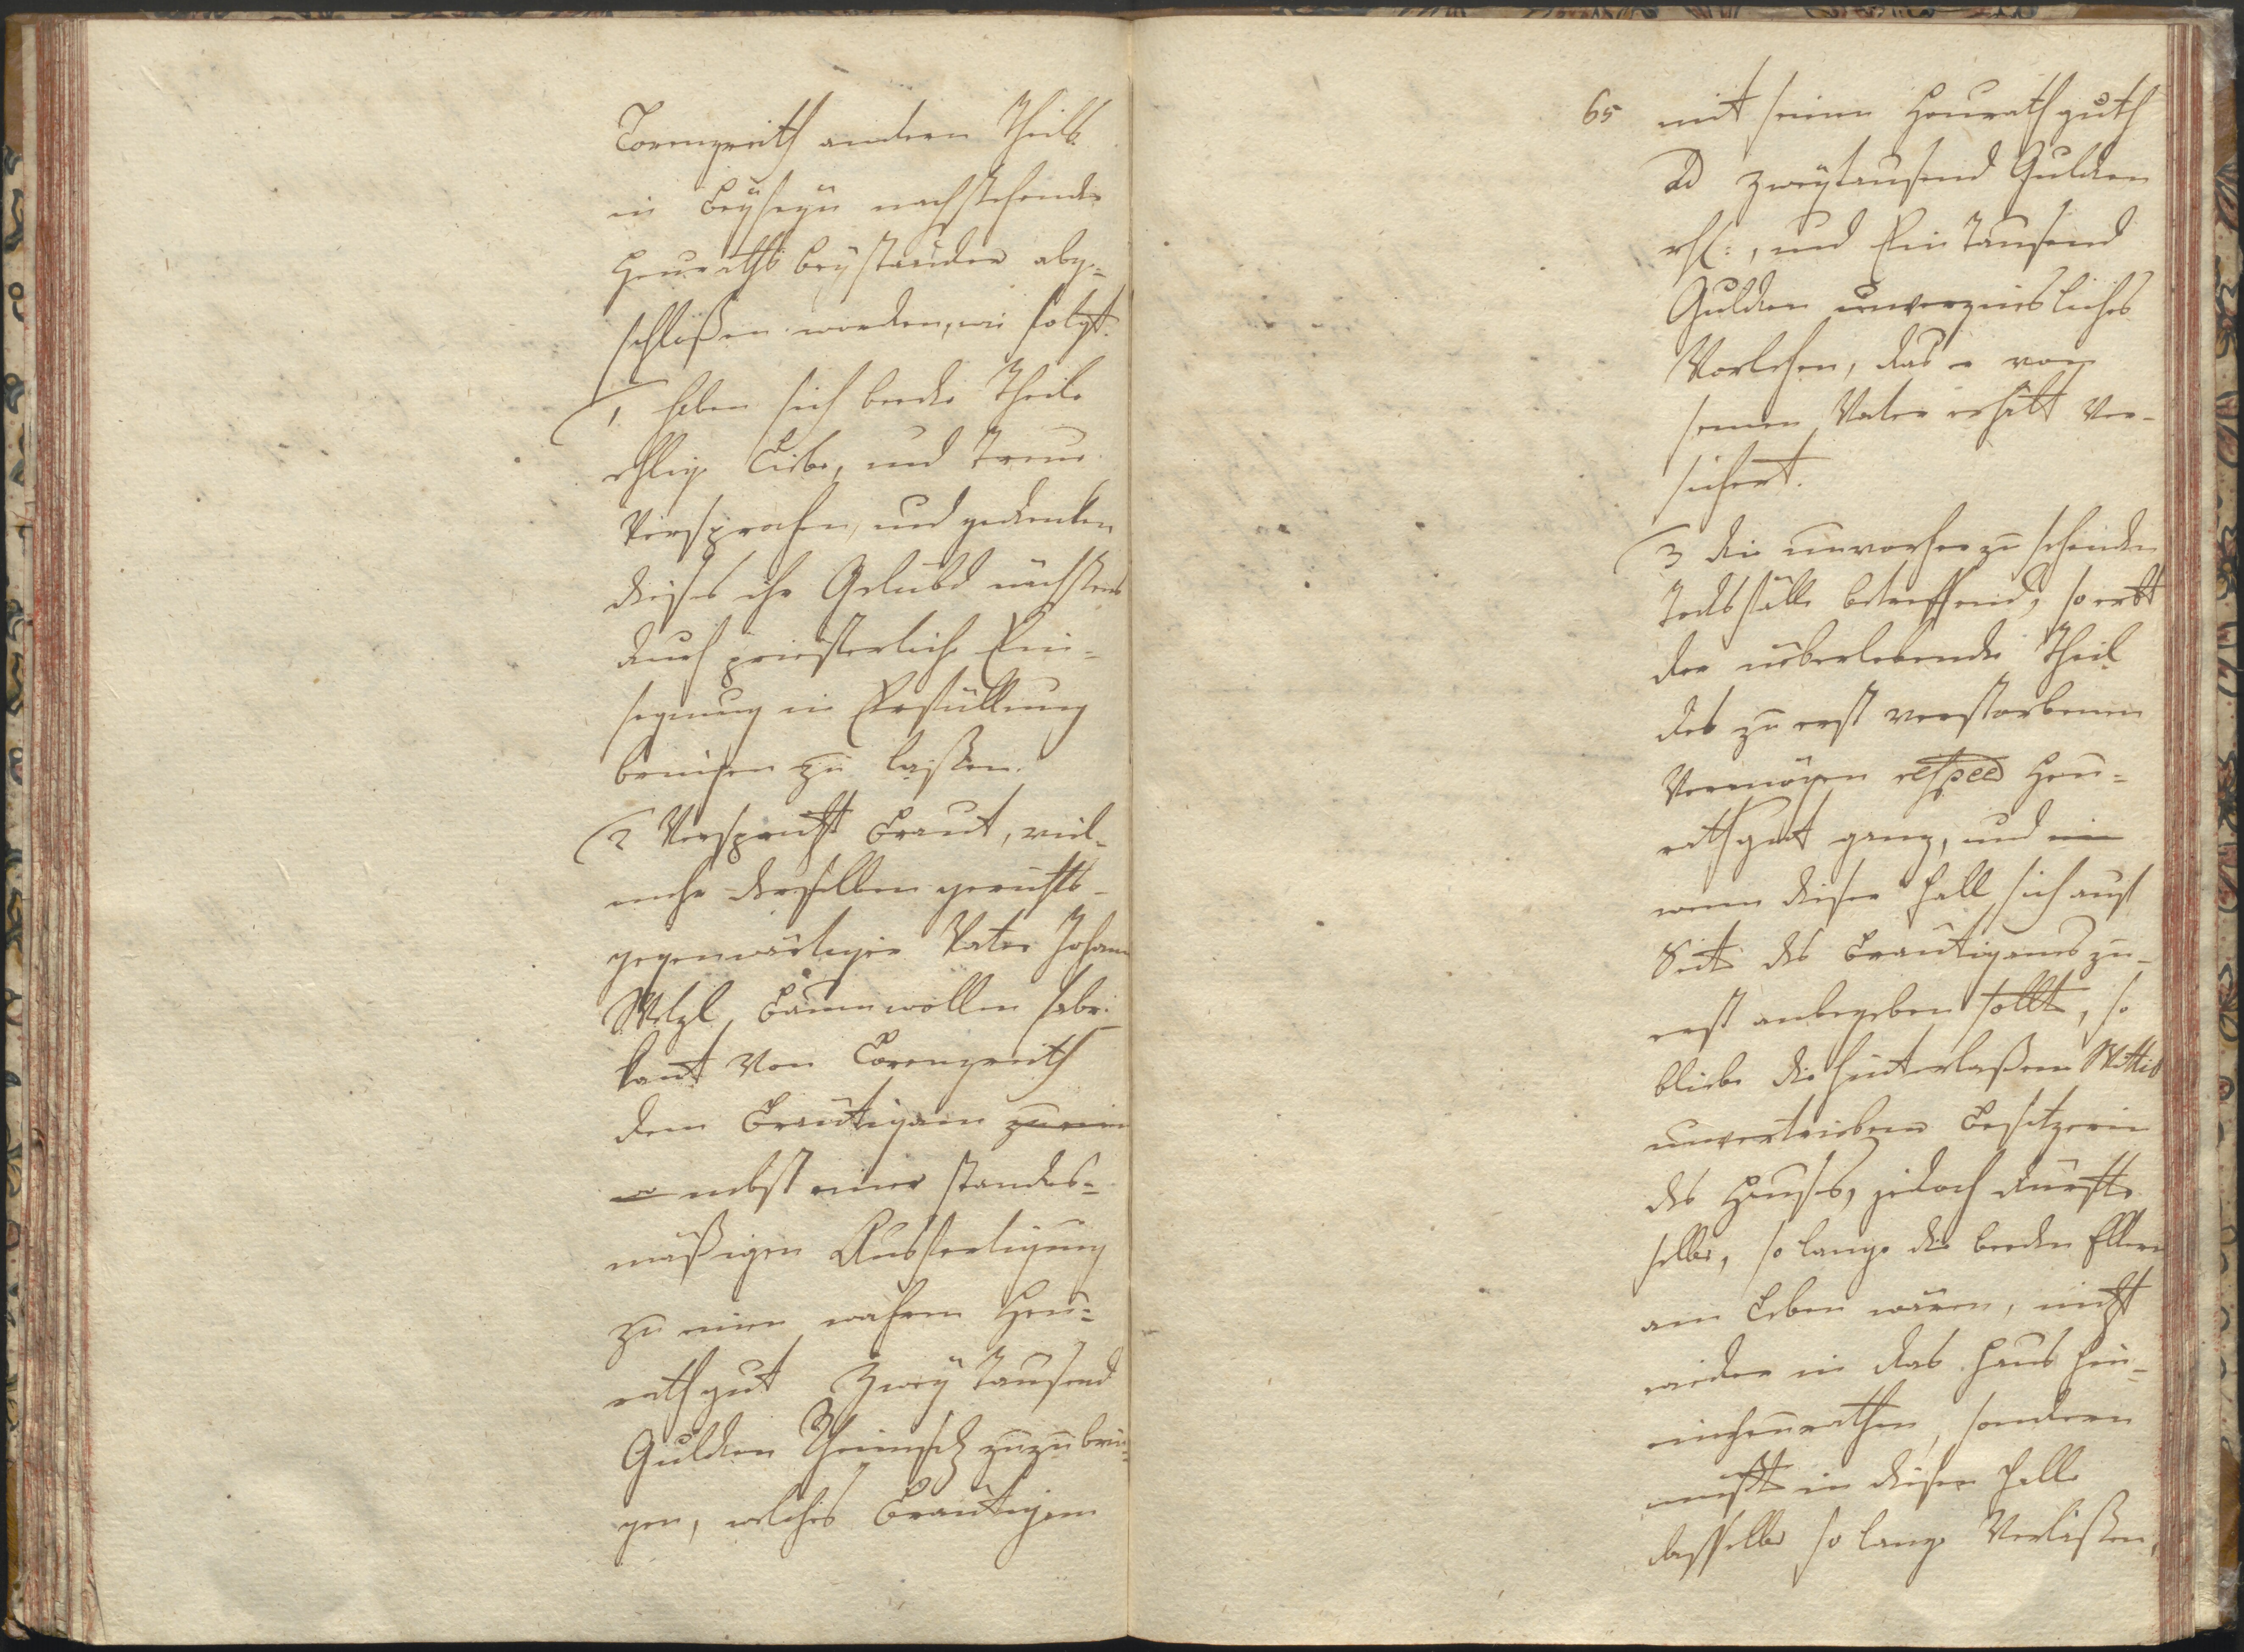 Lorenzreith andern Theils
in Beyseyn nachstehender
Heuraths beystander abge=
schloßen worden, wie folgt.
1 haben sich beede Theile
ehlige Liebe, und Treue
Versprochen, und gedenken
dieses ihr Gelübd nächstens
durch priesterliche Ein=
segnung in Erfüllung
bringen zu laßen.
2 Verspricht Braut, viel-
mehr derselben gerichts-
gegenwärtiger Vater Johann
Welzl Baumwollen fabri-
kant Von Lorenzreith
dem Bräutigam zu ein
nebst einer standes=
mäßigen Ausfertigung
zu einem wahren Heu=
rathgut Zwey Tausend
Gulden Rheinisch zuzubrin-
gen, welches Bräutigam
65 mit seinem Heurathguth
ad zweytausend Gulden
rh:, und Ein Tausend
Gulden unverzinsliches
Vorlehen, das er von
seinem Vater erhält ver-
sichert.
3 die unvorherzusehenden
Todtsfälle betreffend, so erbt
der überlebende Theil
des zu erst verstorbenen
Vermögen respec Heu=
rathgut ganz, und im
wenn dieser Fall sich auf
Seite des Bräutigams zu-
erst anbegeben sollte, so
bliebe die hinterlaßene Wittib
unvertriebene Besitzerin
des Hauses, jedoch dürfte
selbe, so lange die beeden Eltern
am Leben wären, nicht
wieder in das Haus hin-
einheurathen, sondern
müßte in diesem Falle
dasselbe so lange Verlaßen,